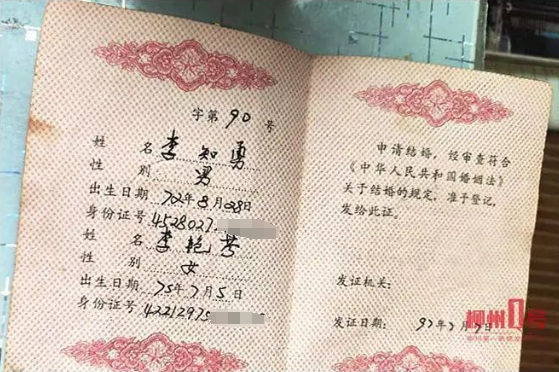 字第 90 号
姓 名 李知勇
性 别 男
出生日期 72年8月28日
身份证号 4528027
姓 名 李艳芳
性 别 女
出生日期 75年7月5日
身份证号 42212975
申请结婚，经审查符合
《中华人民共和国婚姻法》
关于结婚的规定，准于登记，
发给此证。
发证机关：
发证日期：
柳州1号